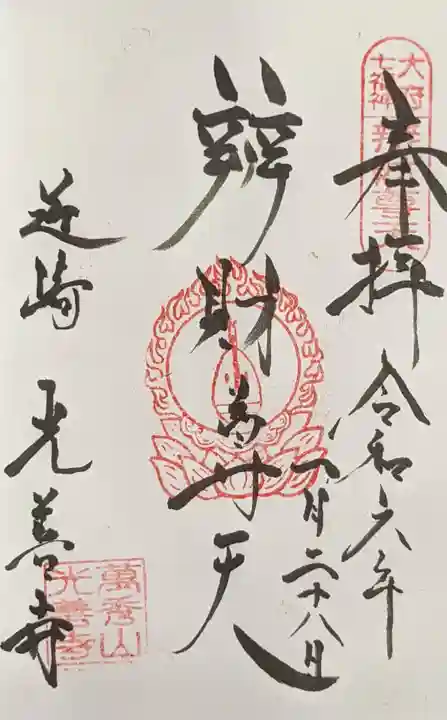 奉拝
令和六年
八月二十八日
大府
七福神
辨財尊天
近崎 光善寺
萬秀山
光善寺